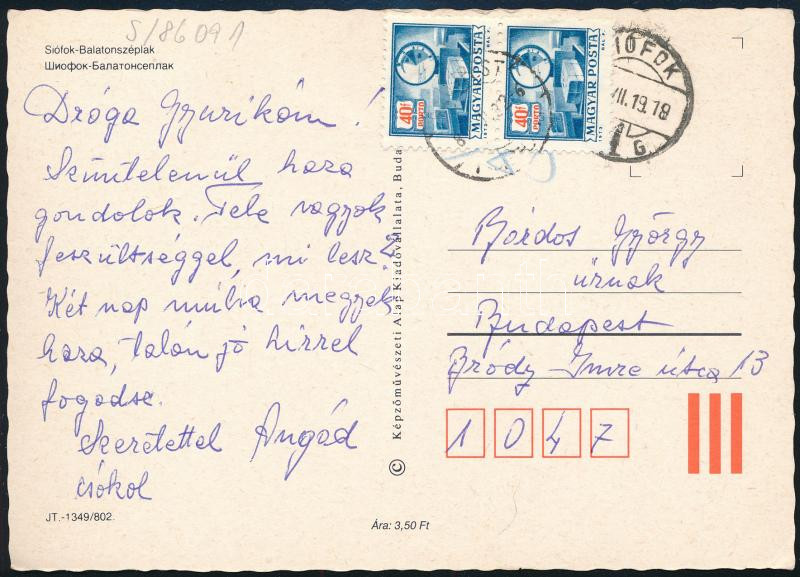 S/86091
Siófok-Balatonszéplak
Шиофок-Балатонсеплак
Dróga Gyurikám!
Szüntelenül haza
gondolok. Tele vagyok
feszültséggel, mi lesz?
Két nap múlva megyek
haza, talán jó hírrel
fogadsz.
Szeretettel Angád
csókol
JT.-1349/802.
Ára: 3,50 Ft
© Képzőművészeti Alap Kiadóvállalata, Buda
40f
PORTÓ
MAGYAR POSTA
40f
PORTÓ
MAGYAR POSTA
IOFOK
VII.19.18
1 G
Bárdos György
úrnak
Budapest
Bródy Imre útca 13
1 0 4 7